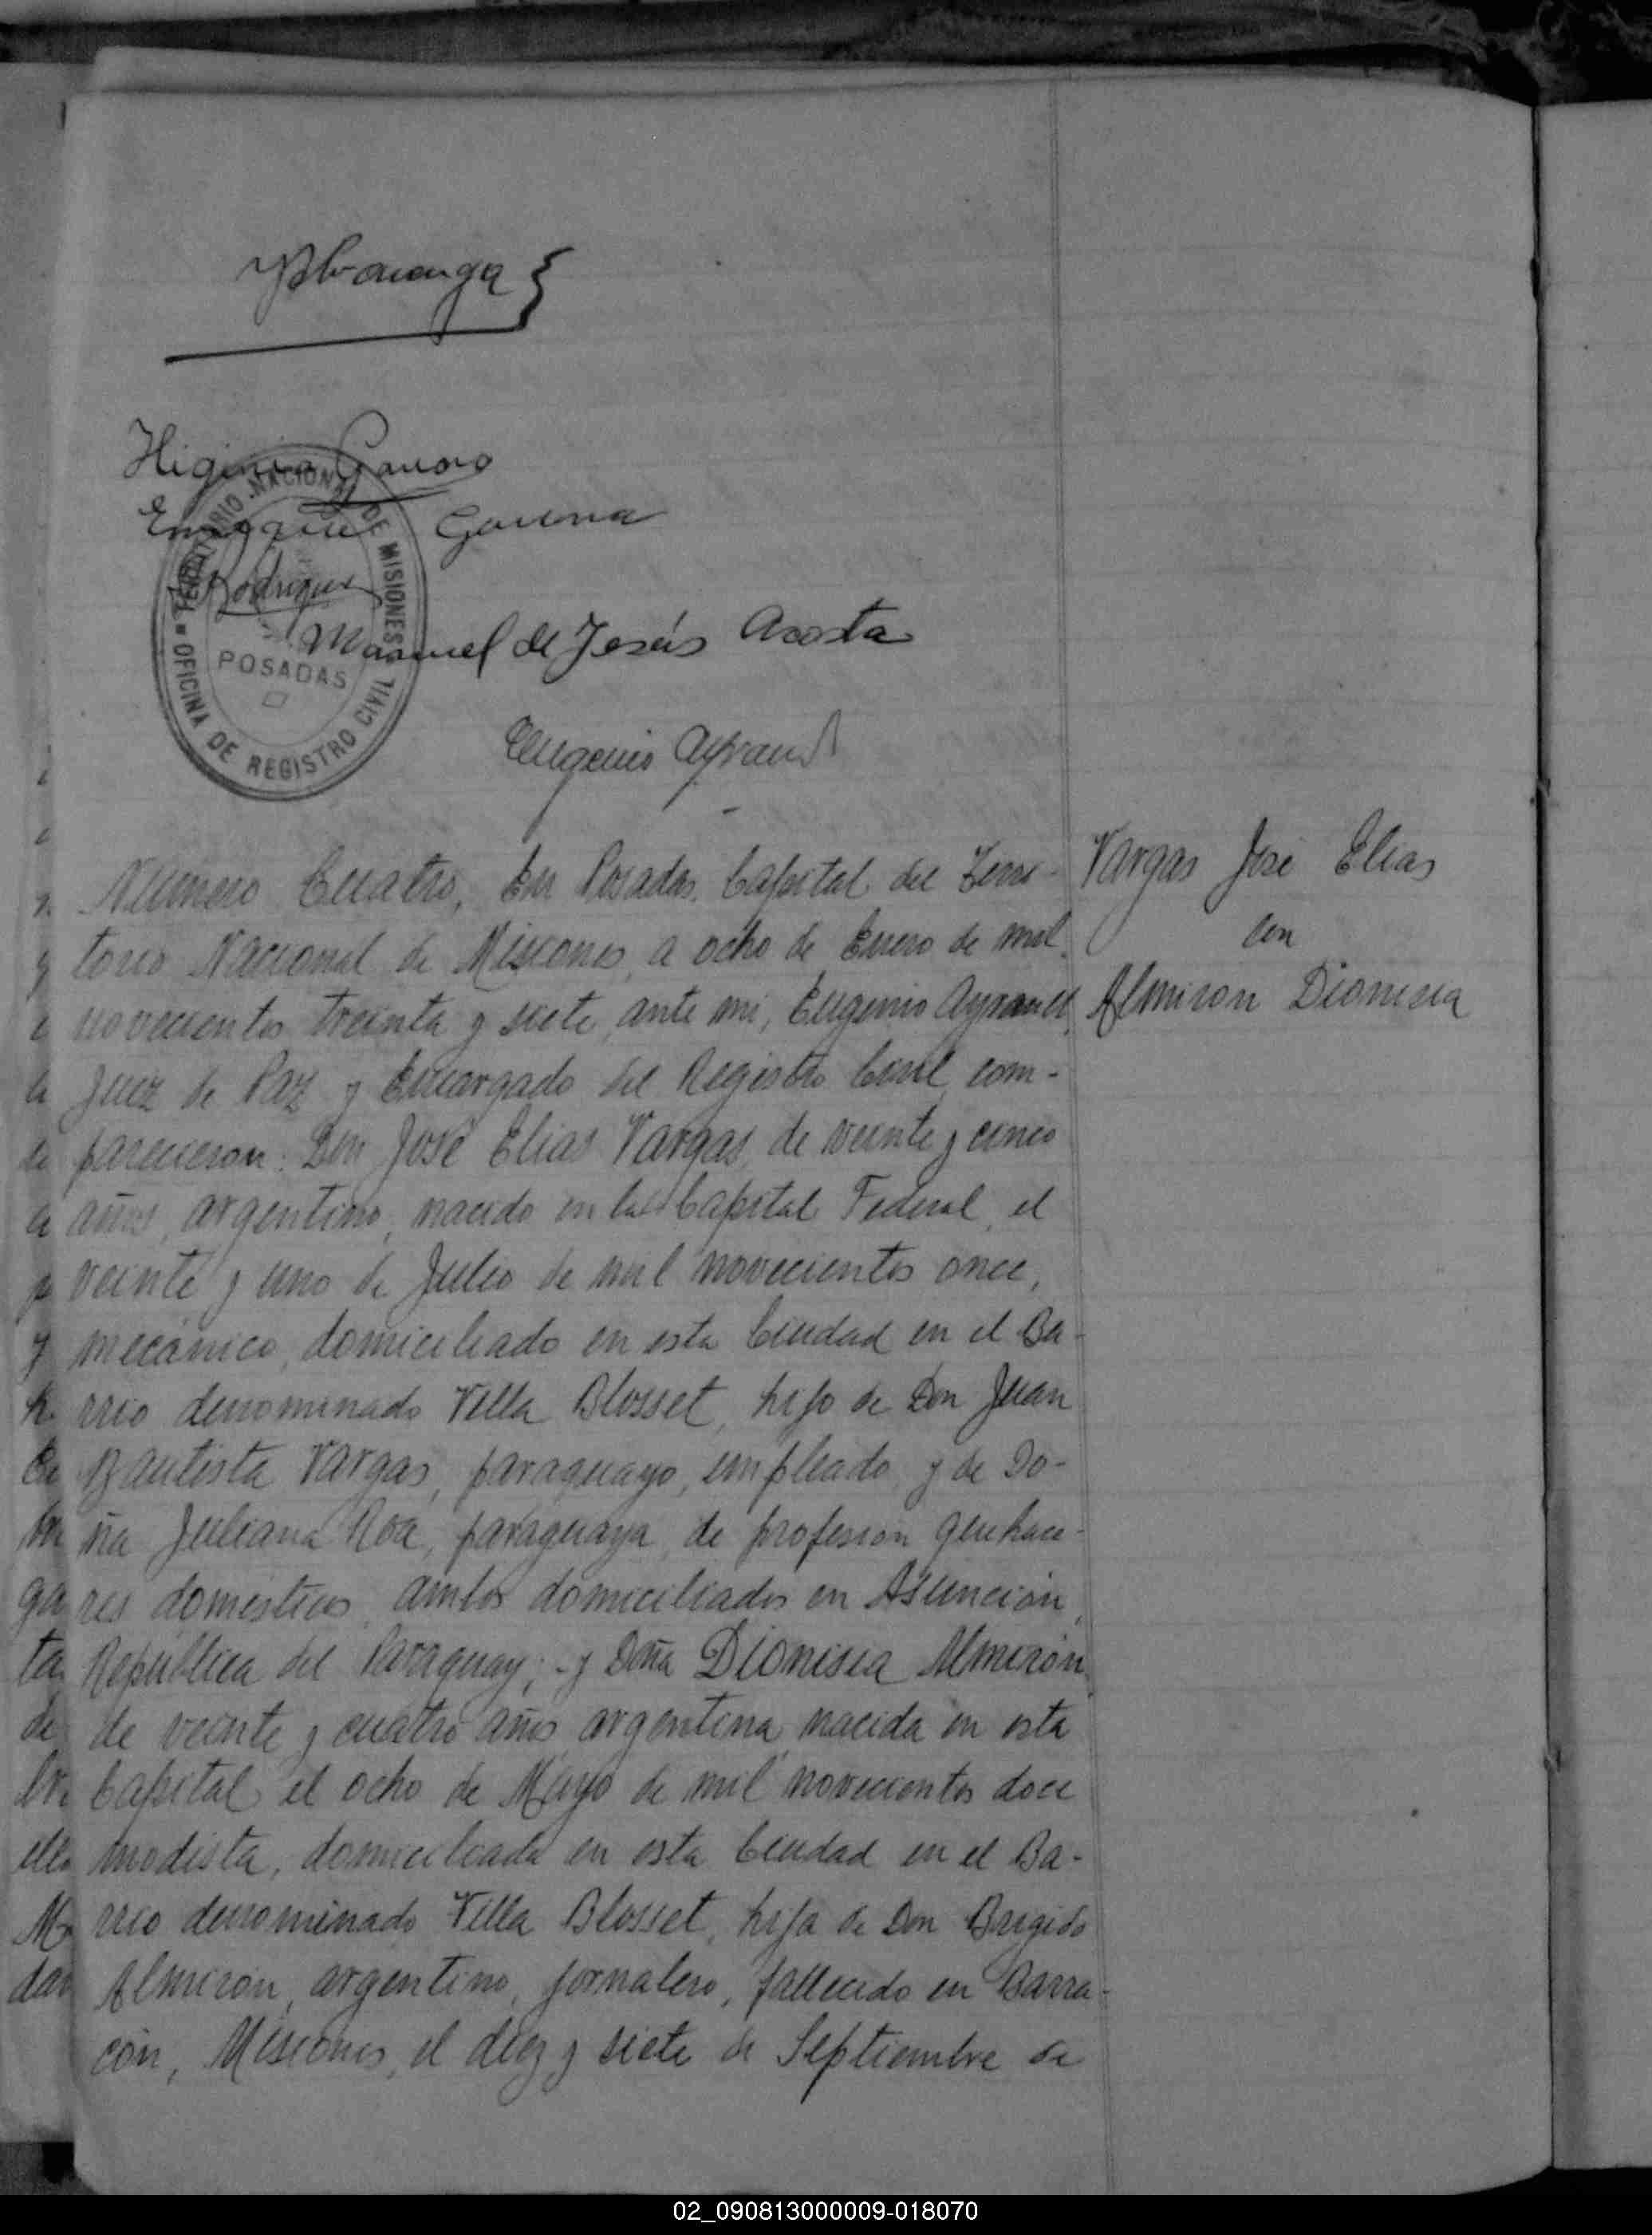 Higinio
Enrique
Rodriguez
Manuel de Jesús Acosta
TERRITORIO NACIONAL DE MISIONES
OFICINA DE REGISTRO CIVIL
POSADAS
Eugenio Ayrault
Vargas José Elias
con
Almiron Dionisia
Número Cuatro, En Posadas, Capital del Terri-
torio Nacional de Misiones, a ocho de Enero de mil
novecientos treinta y siete, ante mi, Eugenio Ayrault,
Juez de Paz y Encargado del Registro Civil, com-
parecieron: Don José Elias Vargas, de veinte y cinco
años, argentino, nacido en la Capital Federal, el
veinte y uno de Julio de mil novecientos once,
mecánico, domiciliado en esta Ciudad en el Ba-
rrio denominado Villa Blosset, hijo de Don Juan
Bautista Vargas, paraguayo, empleado y de Do-
ña Juliana Roa, paraguaya, de profesion quehace-
res domesticos, ambos domiciliados en Asunción,
República del Paraguay; - y Doña Dionisia Almirón,
de veinte y cuatro años, argentina nacida en esta
Capital el ocho de Mayo de mil novecientos doce
modista, domiciliada en esta Ciudad en el Ba-
rrio denominado Villa Blosset, hija de Don Brigido
Almirón, argentino, jornalero, fallecido en Barra-
cón, Misiones, el diez y siete de Septiembre de
02_090813000009-018070